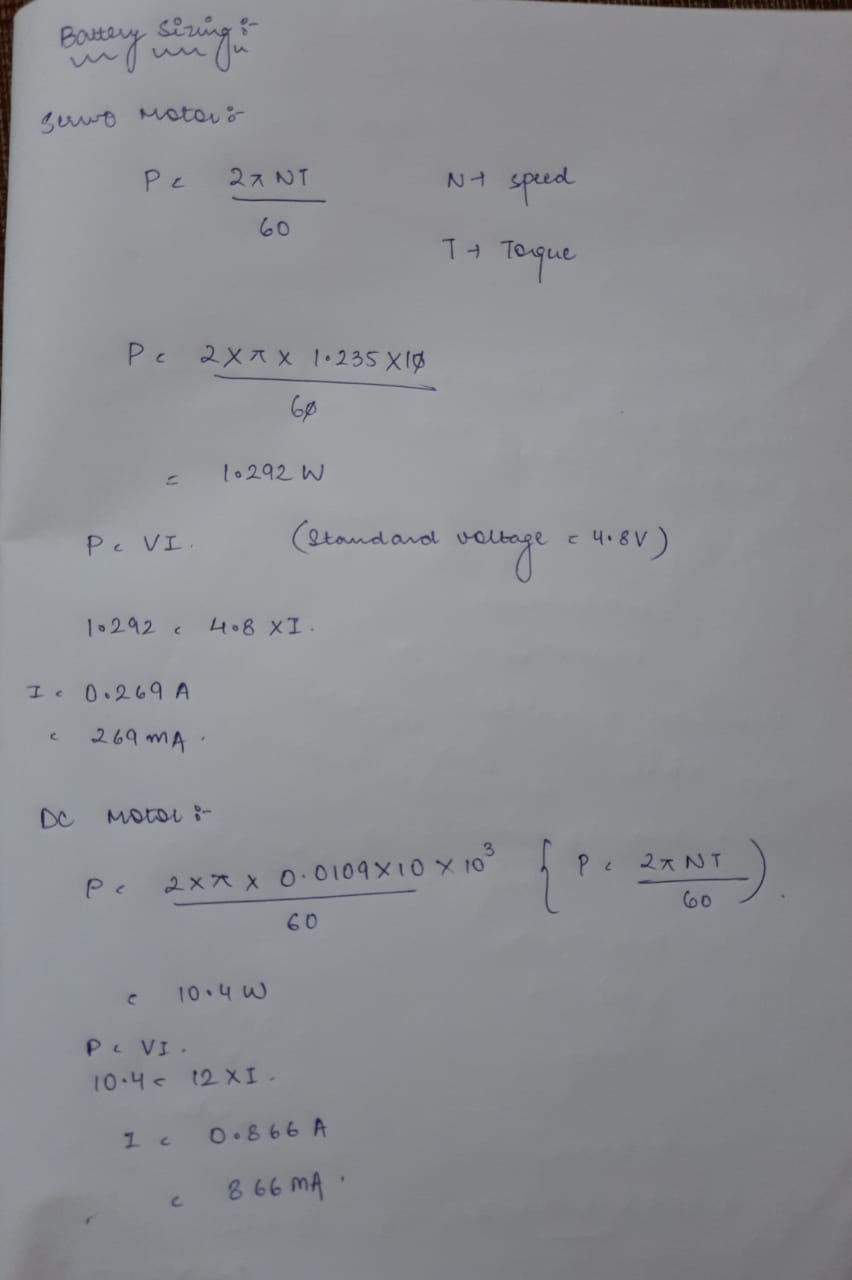 Battery Sizing :-
Servo Motor :-
P = 2π NT / 60
N → speed
T → Torque
P = 2 X π X 1.235 X 10 / 60
= 1.292 W
P = VI. (Standard voltage = 4.8V)
1.292 = 4.8 X I.
I = 0.269 A
= 269 mA.
DC Motor :-
P = 2 X π X 0.0109 X 10 X 10³ / 60 { P = 2π NT / 60 ).
= 10.4 W
P = VI.
10.4 = 12 X I.
I = 0.866 A
= 866 mA.